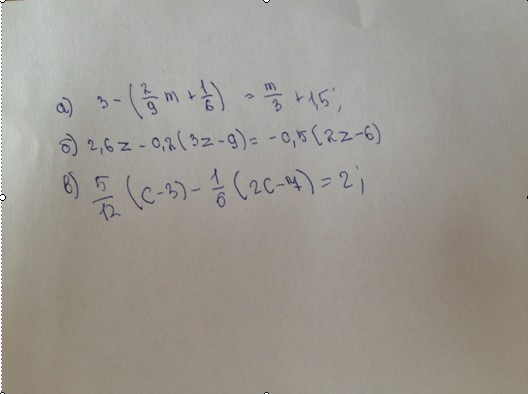 а) 3 - (2/9 m + 1/6) = m/3 + 1,5;
б) 2,6z - 0,2(3z - 9) = -0,5(2z - 6)
в) 5/12 (c - 3) - 1/6 (2c - 7) = 2;